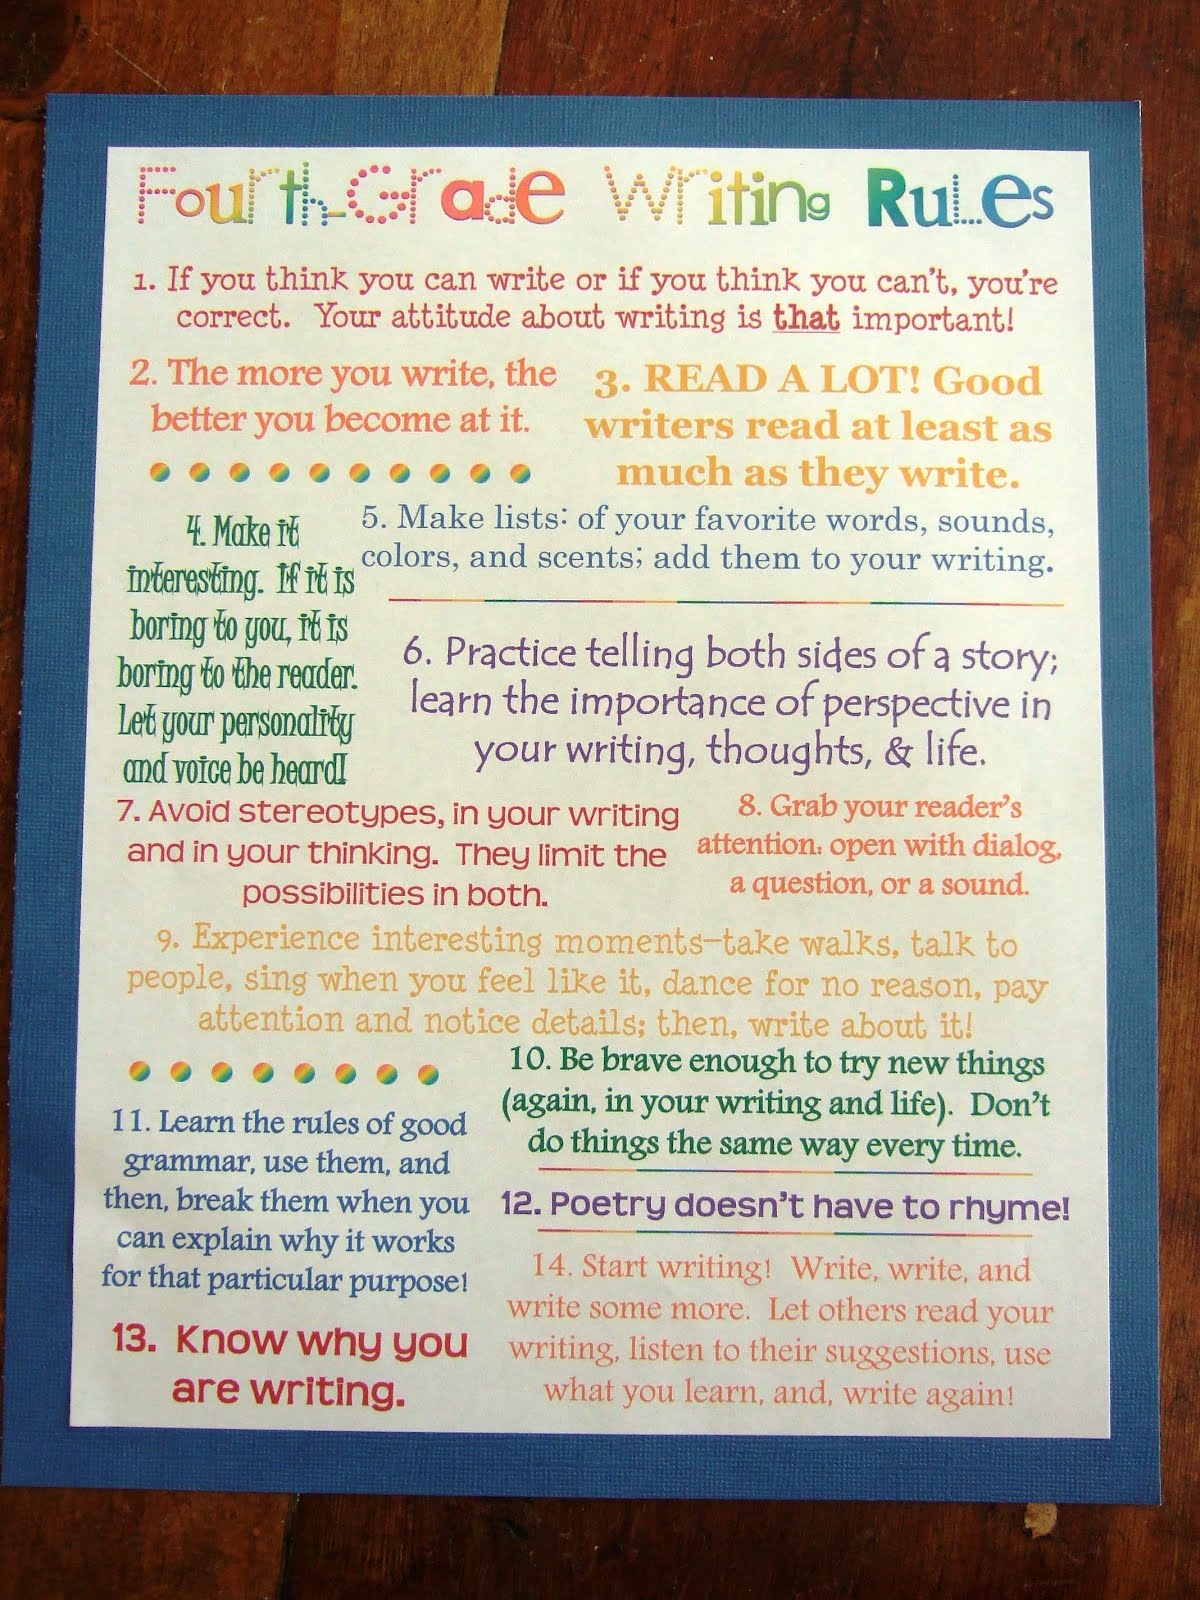 Fourth-Grade Writing Rules
1. If you think you can write or if you think you can't, you're
correct. Your attitude about writing is that important!
2. The more you write, the
better you become at it.
3. READ A LOT! Good
writers read at least as
much as they write.
4. Make it
interesting. If it is
boring to you, it is
boring to the reader.
Let your personality
and voice be heard!
5. Make lists: of your favorite words, sounds,
colors, and scents; add them to your writing.
6. Practice telling both sides of a story;
learn the importance of perspective in
your writing, thoughts, & life.
7. Avoid stereotypes, in your writing
and in your thinking. They limit the
possibilities in both.
8. Grab your reader's
attention: open with dialog,
a question, or a sound.
9. Experience interesting moments—take walks, talk to
people, sing when you feel like it, dance for no reason, pay
attention and notice details; then, write about it!
10. Be brave enough to try new things
(again, in your writing and life). Don't
do things the same way every time.
11. Learn the rules of good
grammar, use them, and
then, break them when you
can explain why it works
for that particular purpose!
12. Poetry doesn't have to rhyme!
13. Know why you
are writing.
14. Start writing! Write, write, and
write some more. Let others read your
writing, listen to their suggestions, use
what you learn, and, write again!